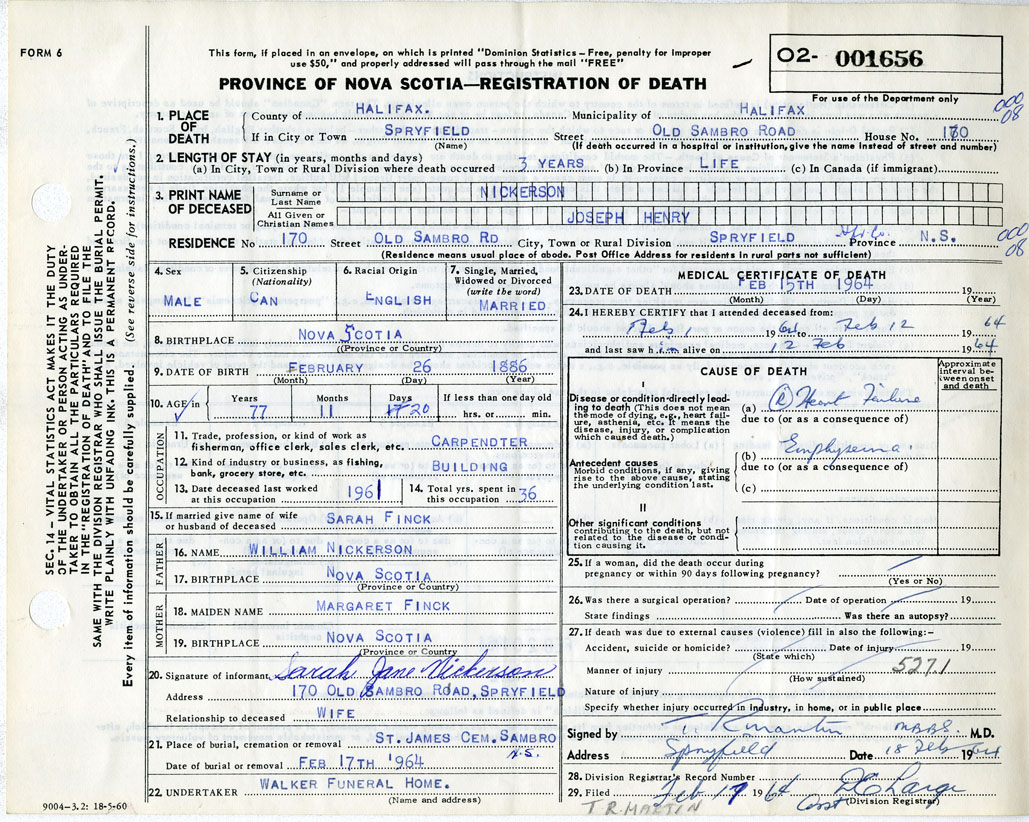 FORM 6
This form, if placed in an envelope, on which is printed "Dominion Statistics – Free, penalty for improper
use $50," and properly addressed will pass through the mail "FREE"
PROVINCE OF NOVA SCOTIA—REGISTRATION OF DEATH
O2- 001656
For use of the Department only
000
08
1. PLACE OF DEATH
County of HALIFAX. Municipality of HALIFAX
If in City or Town SPRYFIELD Street OLD SAMBRO ROAD House No. 170
(Name) (If death occurred in a hospital or institution, give the name instead of street and number)
2. LENGTH OF STAY (in years, months and days)
(a) In City, Town or Rural Division where death occurred 3 YEARS (b) In Province LIFE (c) In Canada (if immigrant)
3. PRINT NAME OF DECEASED
Surname or Last Name NICKERSON
All Given or Christian Names JOSEPH HENRY
RESIDENCE No 170 Street OLD SAMBRO RD City, Town or Rural Division SPRYFIELD Hfx. Co. Province N.S.
000
08
(Residence means usual place of abode. Post Office Address for residents in rural parts not sufficient)
4. Sex
MALE
5. Citizenship
(Nationality)
CAN
6. Racial Origin
ENGLISH
7. Single, Married,
Widowed or Divorced
(write the word)
MARRIED
8. BIRTHPLACE NOVA SCOTIA
(Province or Country)
9. DATE OF BIRTH FEBRUARY 26 1886
(Month) (Day) (Year)
10. AGE in Years Months Days If less than one day old
77 11 20 hrs. or min.
OCCUPATION
11. Trade, profession, or kind of work as
fisherman, office clerk, sales clerk, etc. CARPENDTER
12. Kind of industry or business, as fishing,
bank, grocery store, etc. BUILDING
13. Date deceased last worked
at this occupation 1961
14. Total yrs. spent in
this occupation 36
15. If married give name of wife
or husband of deceased SARAH FINCK
FATHER
16. NAME WILLIAM NICKERSON
17. BIRTHPLACE NOVA SCOTIA
(Province or Country)
MOTHER
18. MAIDEN NAME MARGARET FINCK
19. BIRTHPLACE NOVA SCOTIA
(Province or Country
20. Signature of informant Sarah Jane Nickerson
Address 170 OLD SAMBRO ROAD, SPRYFIELD
Relationship to deceased WIFE
21. Place of burial, cremation or removal ST. JAMES CEM. SAMBRO
N.S.
Date of burial or removal FEB 17TH '1964
22. UNDERTAKER WALKER FUNERAL HOME.
(Name and address)
9004-3.2: 18-5-60
MEDICAL CERTIFICATE OF DEATH
23. DATE OF DEATH FEB 15TH 1964 19
(Month) (Day) (Year)
24. I HEREBY CERTIFY that I attended deceased from:
Feb 1 1964 to Feb 12 1964
and last saw him alive on 12 Feb 1964
CAUSE OF DEATH
Approximate
interval be-
tween onset
and death
I
Disease or condition directly lead-
ing to death (This does not mean
the mode of dying, e.g., heart fail-
ure, asthenia, etc. It means the
disease, injury, or complication
which caused death.)
(a) Heart Failure
due to (or as a consequence of)
Antecedent causes
Morbid conditions, if any, giving
rise to the above cause, stating
the underlying condition last.
(b) Emphysema.
due to (or as a consequence of)
(c)
II
Other significant conditions
contributing to the death, but not
related to the disease or condi-
tion causing it.
25. If a woman, did the death occur during
pregnancy or within 90 days following pregnancy?
(Yes or No)
26. Was there a surgical operation? Date of operation 19
State findings Was there an autopsy?
27. If death was due to external causes (violence) fill in also the following:—
Accident, suicide or homicide? Date of injury 19
(State which)
Manner of injury 5271
(How sustained)
Nature of injury
Specify whether injury occurred in industry, in home, or in public place
Signed by T. R. Martin MBBS. M.D.
Address Spryfield Date 18 Feb 1964
28. Division Registrar's Record Number
29. Filed Feb 19 1964
(Division Registrar)
T.R. MARTIN
SEC. 14 – VITAL STATISTICS ACT MAKES IT THE DUTY
OF THE UNDERTAKER OR PERSON ACTING AS UNDER-
TAKER TO OBTAIN ALL THE PARTICULARS REQUIRED
IN THE "REGISTRATION OF DEATH" AND TO FILE THE
SAME WITH THE DIVISION REGISTRAR WHO SHALL ISSUE THE BURIAL PERMIT.
WRITE PLAINLY WITH UNFADING INK. THIS IS A PERMANENT RECORD.
Every item of information should be carefully supplied. (See reverse side for instructions.)